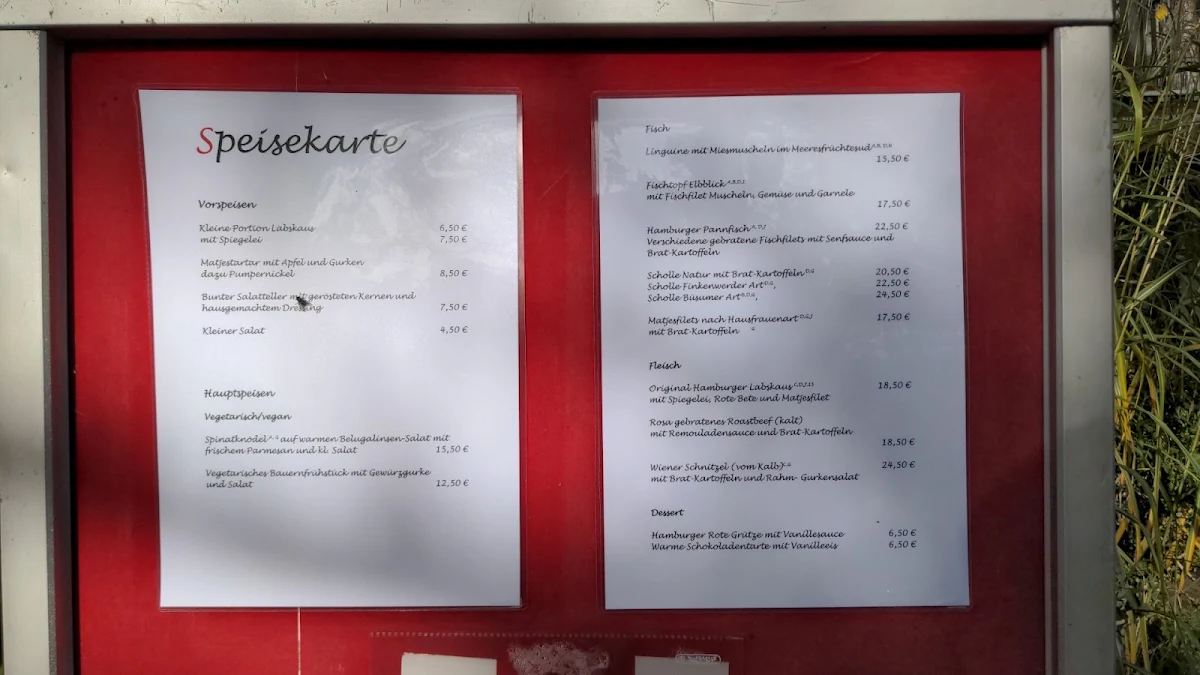 Speisekarte
Vorspeisen
Kleine Portion Labskaus 6,50 €
mit Spiegelei 7,50 €
Matjestartar mit Apfel und Gurken
dazu Pumpernickel 8,50 €
Bunter Salatteller mit gerösteten Kernen und
hausgemachtem Dressing 7,50 €
Kleiner Salat 4,50 €
Hauptspeisen
Vegetarisch/vegan
Spinatknödel auf warmen Belugalinsen-Salat mit
frischem Parmesan und kl. Salat 15,50 €
Vegetarisches Bauernfrühstück mit Gewürzgurke
und Salat 12,50 €
Fisch
Linguine mit Miesmuscheln im Meeresfrüchtesud
15,50 €
Fischtopf Elbblick
mit Fischfilet Muscheln, Gemüse und Garnele
17,50 €
Hamburger Pannfisch 22,50 €
Verschiedene gebratene Fischfilets mit Senfsauce und
Brat-Kartoffeln
Scholle Natur mit Brat-Kartoffeln 20,50 €
Scholle Finkenwerder Art, 22,50 €
Scholle Büsumer Art, 24,50 €
Matjesfilets nach Hausfrauenart 17,50 €
mit Brat-Kartoffeln
Fleisch
Original Hamburger Labskaus 18,50 €
mit Spiegelei, Rote Bete und Matjesfilet
Rosa gebratenes Roastbeef (kalt)
mit Remouladensauce und Brat-Kartoffeln
18,50 €
Wiener Schnitzel (vom Kalb) 24,50 €
mit Brat-Kartoffeln und Rahm- Gurkensalat
Dessert
Hamburger Rote Grütze mit Vanillesauce 6,50 €
Warme Schokoladentarte mit Vanilleeis 6,50 €